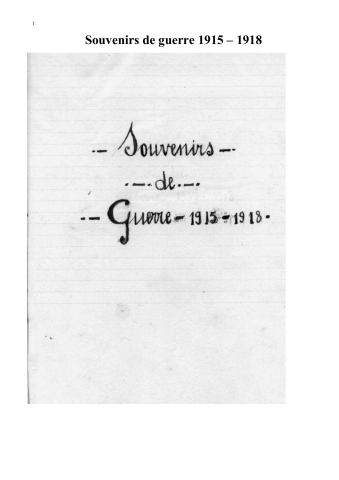 Souvenirs de guerre 1915 – 1918
-- Souvenirs --
--- de ---
-- Guerre - 1915 - 1918 -